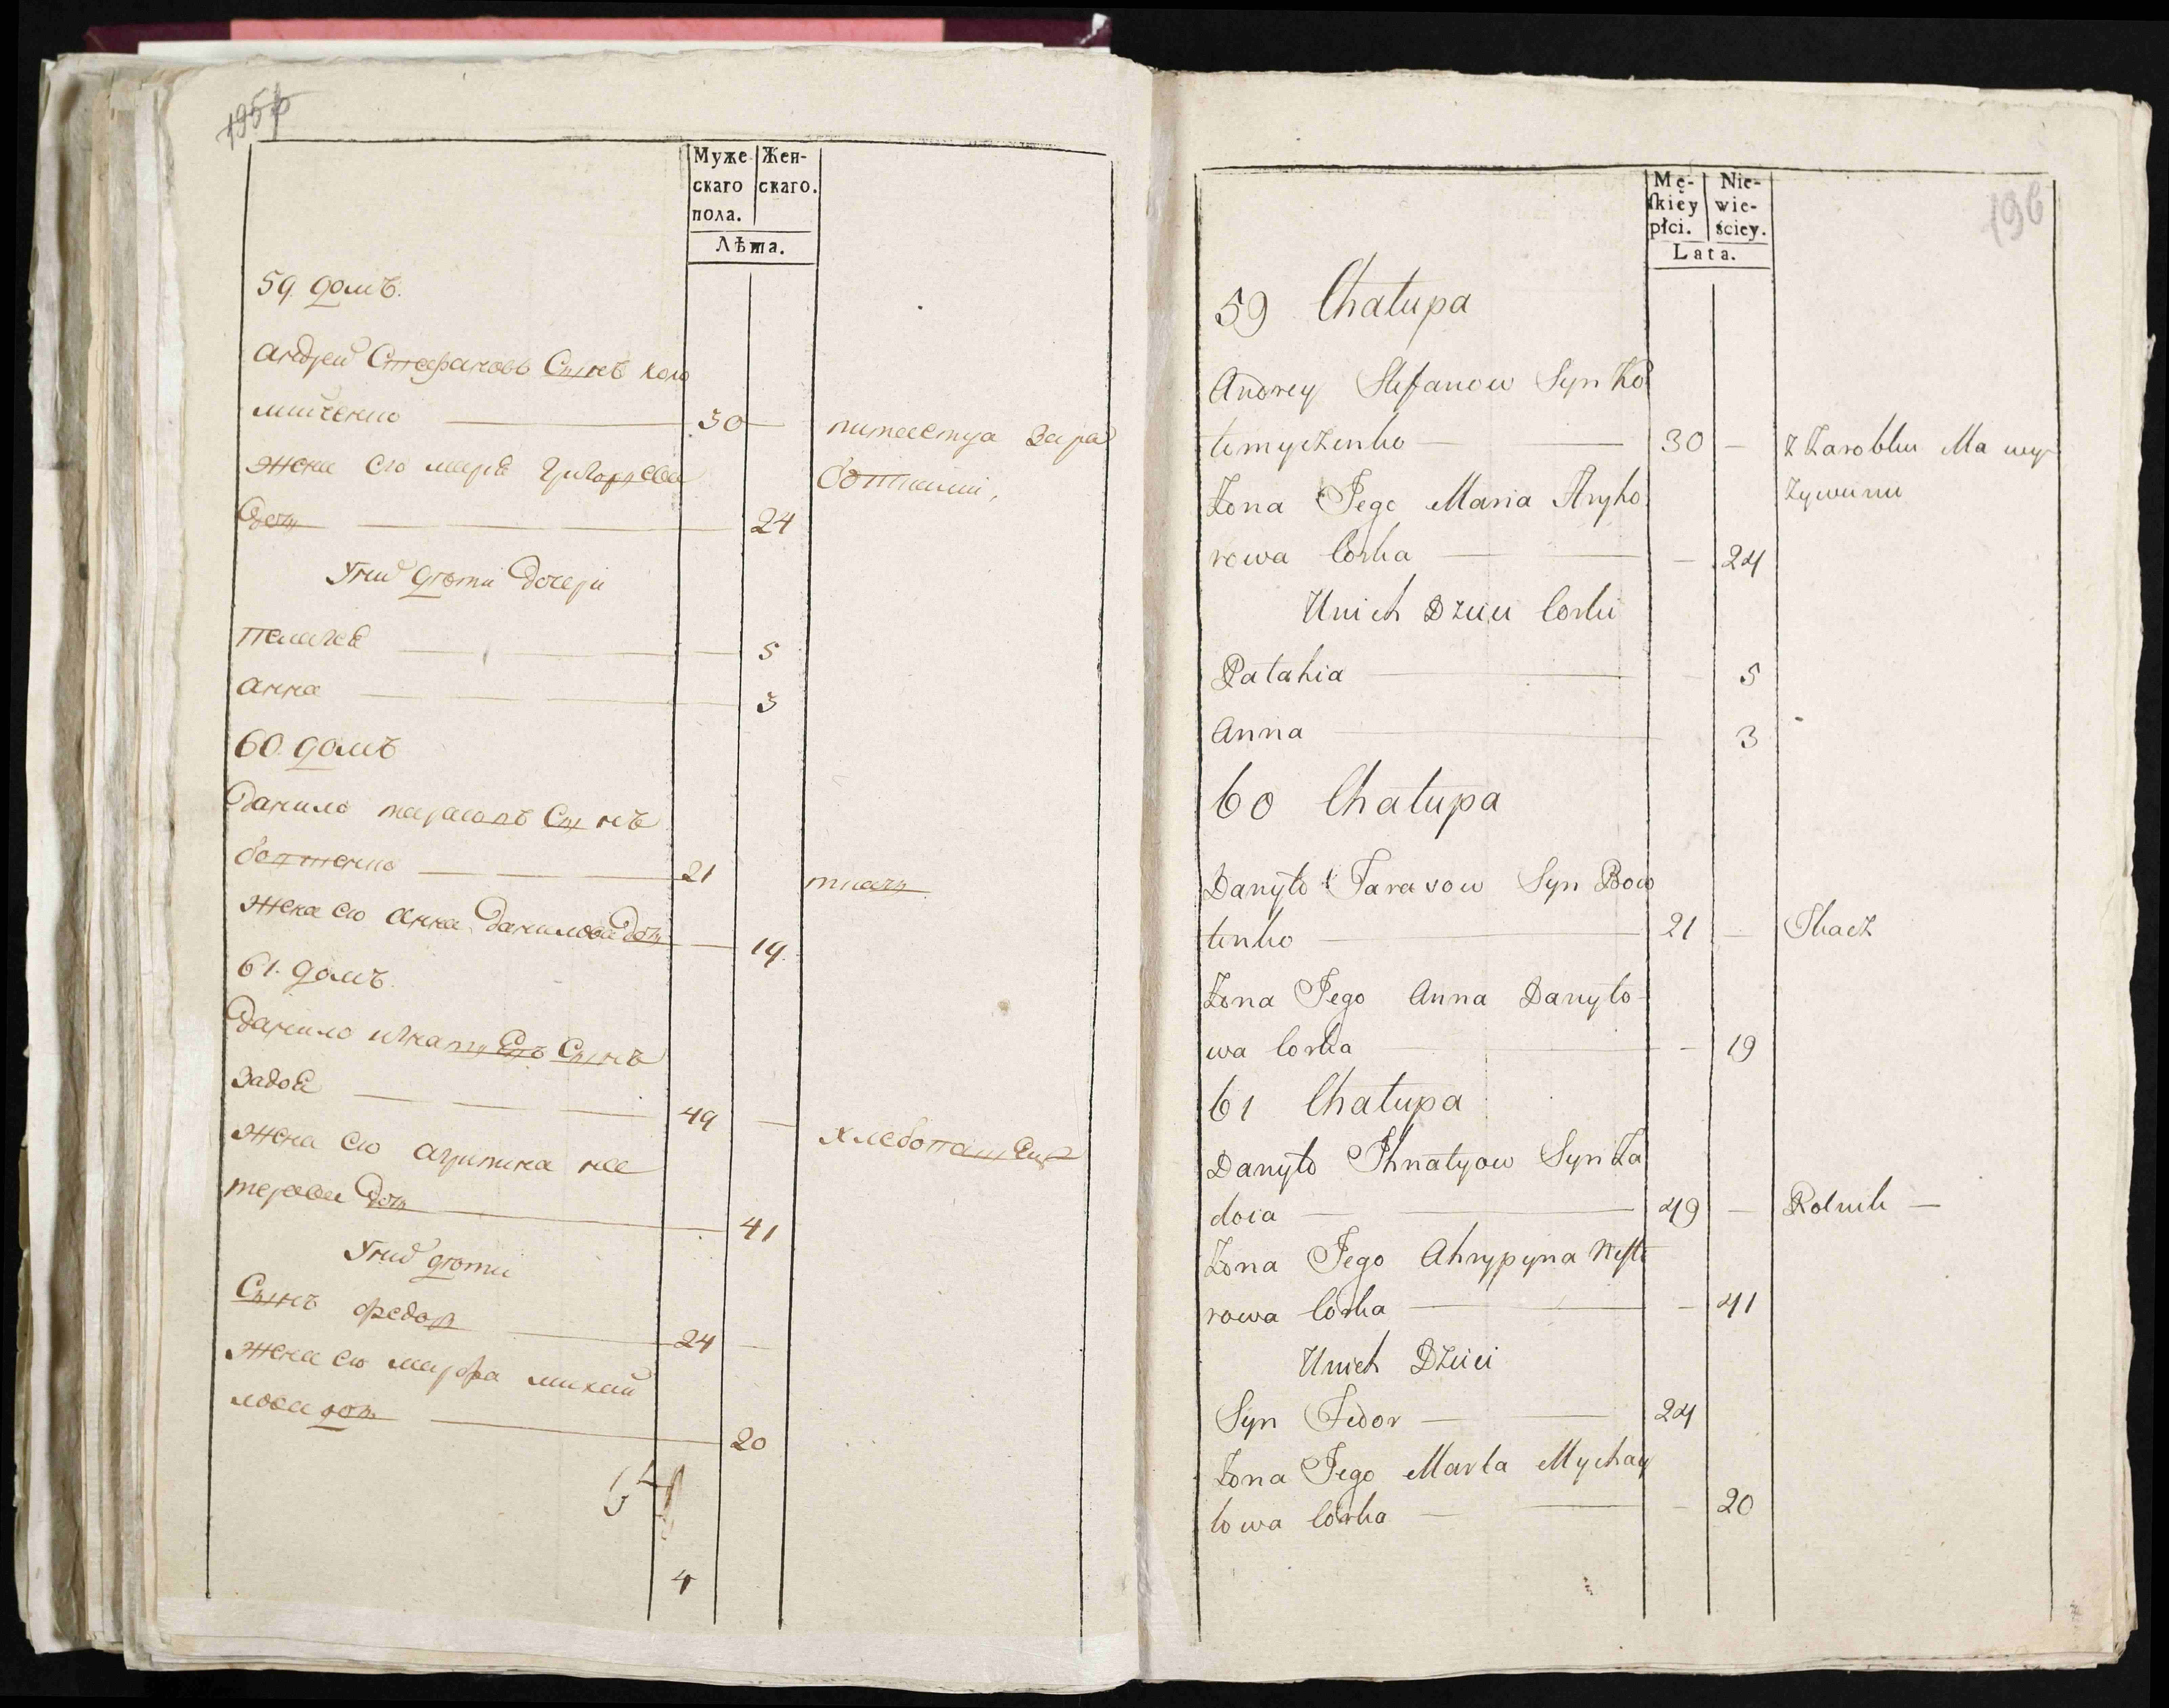 195
Муже
скаго
пола.
Жен-
скаго.
Лѣта.
59. домъ.
андрей Стефановъ Сынъ коло
мийченко 30
питается Зара
ботками,
жена его маря григорьева
Доч 24
У них дѣти Дочери
пелагея 5
анна 3
60. домъ
Данило тарасовъ Сынъ
бовтенко 21 ткачъ
жена его анна Данилова Доч 19.
61. домъ.
Данило игнатьевъ Сынъ
Задоя 49 хлебопашецъ
жена его агрипина нес
терова Доч 41
У них дѣти
Сынъ федор 24
жена его марфа михай
лова доч 20
4
196
Mę-
skiey
płci.
Nie-
wie-
ściey.
Lata.
59 Chałupa
Andrey Stefanow Syn Ko
łomyczenko 30 — z Zarobku Ma wy
żywienie
Zona Jego Maria Hryho
rowa Corka — 24
U nich Dzieci Corki
Palahia 5
Anna 3
60 Chałupa
Danyło Tarasow Syn Bow
tenko 21 — Tkacz
Zona Jego Anna Danyło-
wa Corka — 19
61 Chałupa
Danyło Ihnatyow Syn Za
doia — 49 — Rolnik —
Zona Jego Ahrypyna Neste
rowa Corka — 41
U nich Dzieci
Syn Fedor — 24
Zona Jego Marta Mychay
łowa Corka — 20